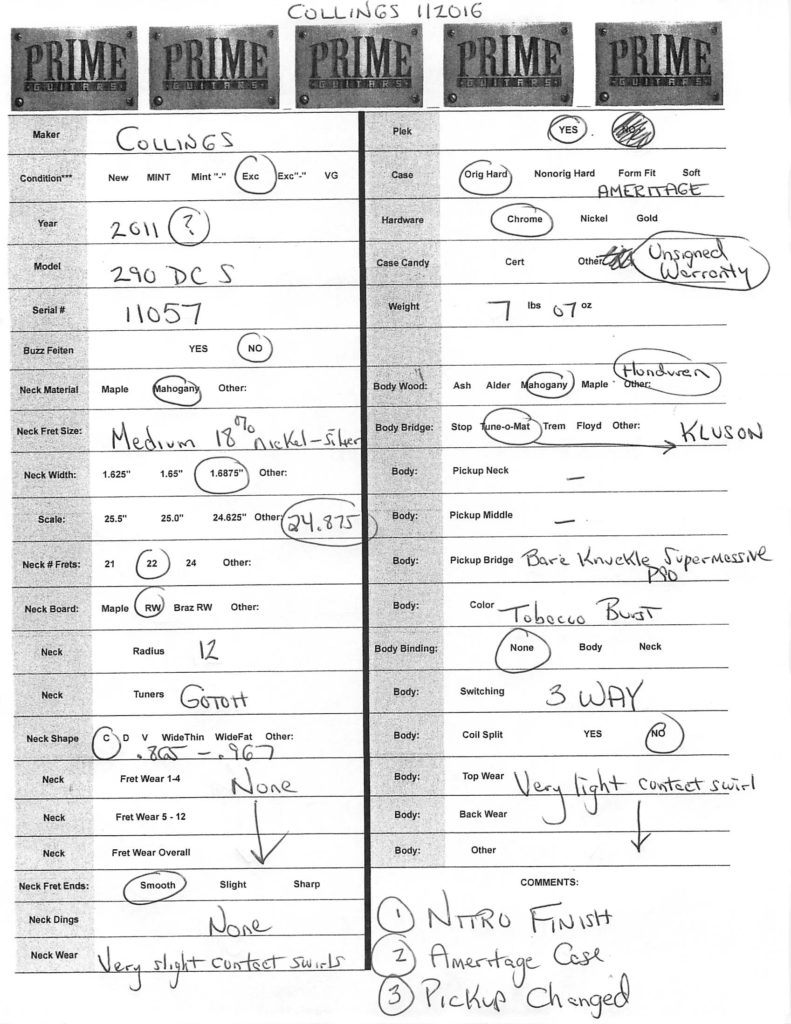 COLLINGS 1/2016
PRIME GUITARS PRIME GUITARS PRIME GUITARS PRIME GUITARS PRIME GUITARS
Maker COLLINGS
Condition*** New MINT Mint "-" Exc Exc"-" VG
Year 2011 ?
Model 290 DC S
Serial # 11057
Buzz Feiten YES NO
Neck Material Maple Mahogany Other:
Neck Fret Size: Medium 18% nickel-silver
Neck Width: 1.625" 1.65" 1.6875" Other:
Scale: 25.5" 25.0" 24.625" Other: 24.875
Neck # Frets: 21 22 24 Other:
Neck Board: Maple RW Braz RW Other:
Neck Radius 12
Neck Tuners GOTOH
Neck Shape C D V WideThin WideFat Other:
.865 - .967
Neck Fret Wear 1-4 None
Neck Fret Wear 5 - 12
Neck Fret Wear Overall
Neck Fret Ends: Smooth Slight Sharp
Neck Dings None
Neck Wear Very slight contact swirls
Plek YES NO
Case Orig Hard Nonorig Hard Form Fit Soft
AMERITAGE
Hardware Chrome Nickel Gold
Case Candy Cert Other Unsigned
Warranty
Weight 7 lbs 07 oz
Honduren
Body Wood: Ash Alder Mahogany Maple Other:
Body Bridge: Stop Tune-o-Mat Trem Floyd Other:
KLUSON
Body: Pickup Neck —
Body: Pickup Middle —
Body: Pickup Bridge Bare Knuckle Supermassive
P90
Body: Color Tobacco Burst
Body Binding: None Body Neck
Body: Switching 3 WAY
Body: Coil Split YES NO
Body: Top Wear Very light contact swirl
Body: Back Wear
Body: Other
COMMENTS:
1 NITRO FINISH
2 Ameritage Case
3 Pickup Changed